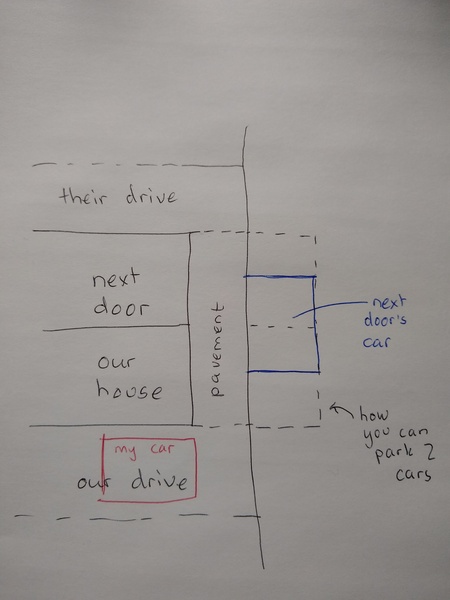 their drive
next
door
our
house
pavement
next
door's
car
how
you can
park 2
cars
my car
our drive